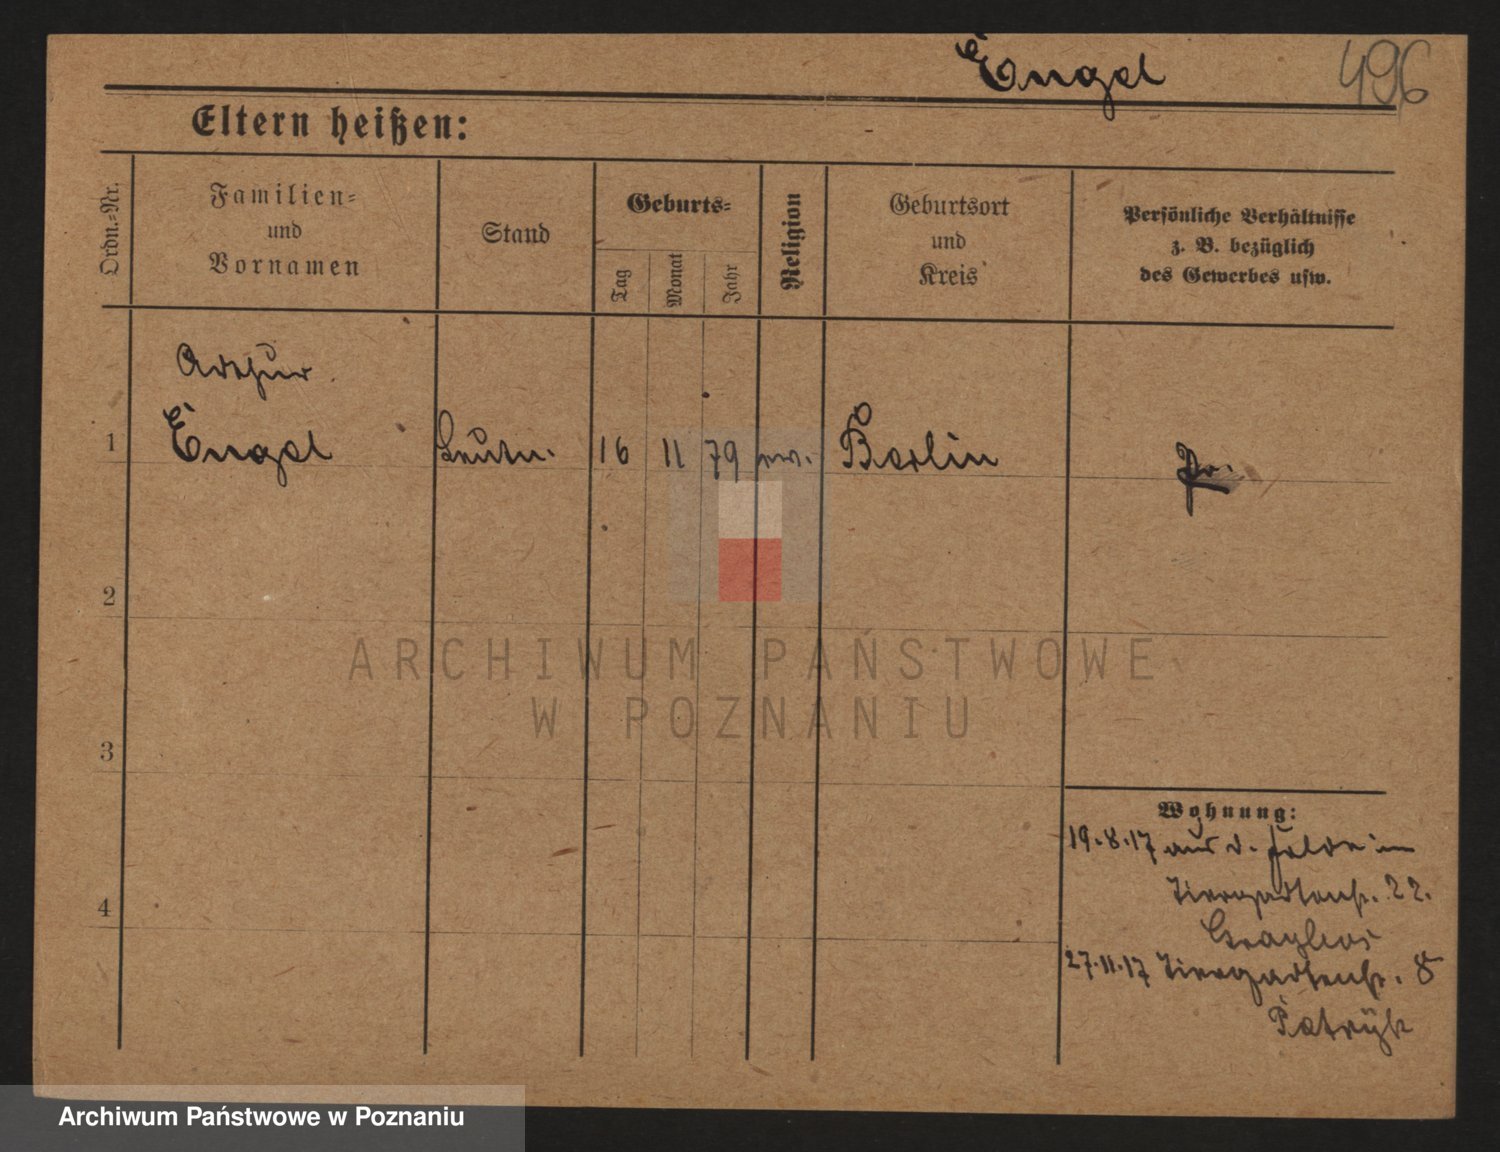 Engel 496
Eltern heißen:
Ordn.=Nr.
Familien=
und
Vornamen
Stand
Geburts=
Tag
Monat
Jahr
Religion
Geburtsort
und
Kreis
Persönliche Verhältnisse
z. B. bezüglich
des Gewerbes usw.
Arthur
1 Engel Leutn. 16 11 79 ev. Berlin Pr.
2
3
4
Wohnung:
19.8.17 aus d. Felde in
Tiergartenstr. 22.
27.11.17 Tiergartenstr. 8
Patryk
ARCHIWUM PAŃSTWOWE
W POZNANIU
Archiwum Państwowe w Poznaniu